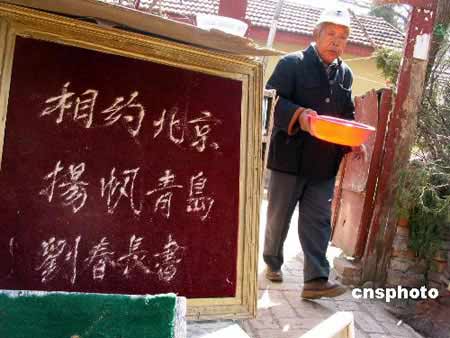 相约北京
揚帆青島
劉春長書
cnsphoto